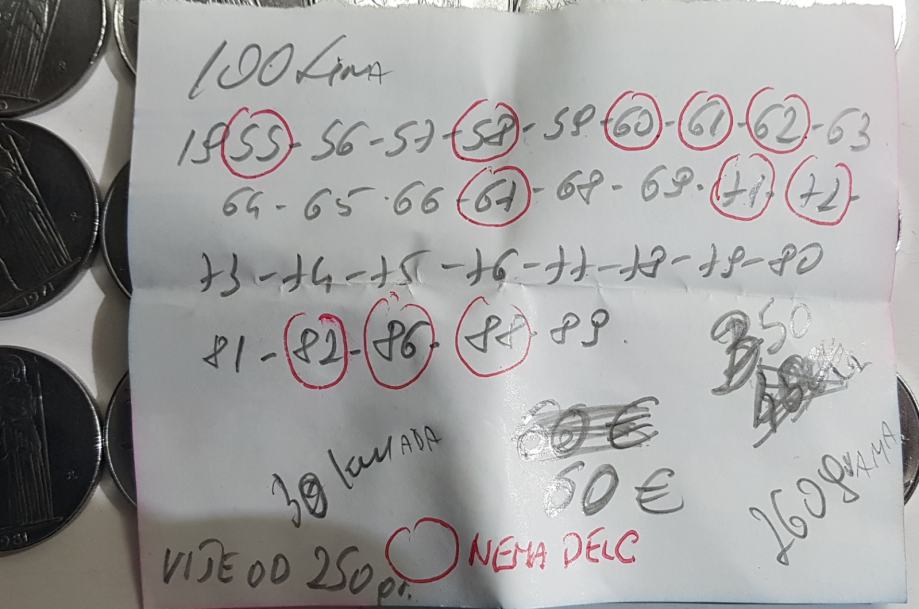 100 LIRA
1955-56-57-58-59-60-61-62-63
64-65-66-67-68-69-71-72-
73-74-75-76-77-78-79-80
81-82-86-88-89.
350
60 €
50 €
260 grAMA
VIJE OD 250
NEMA DELC
1971
1981